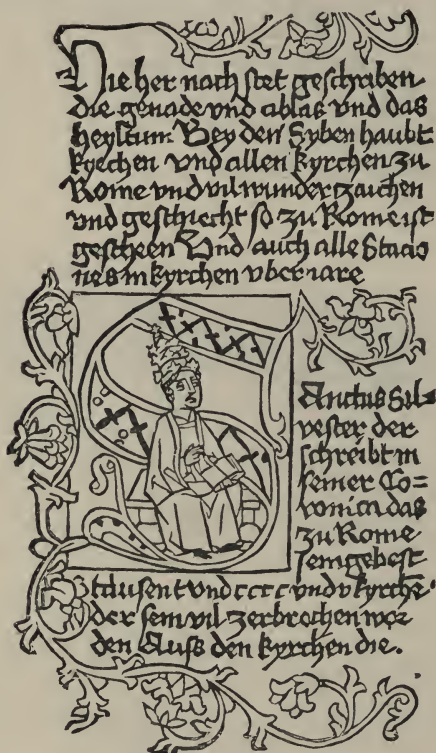 Hie her noch stet geschriben
die genade vnd ablas vnd das
heyltum Bey den Syben haubt
kyrchen vnd allen kyrchen zu
Rome vnd vil wunderzaichen
vnd geschiecht so zu Rome ist
gescheen Vnd auch alle Stacio
nes in kyrchen vber iare
Sanctus Sil
vester der
schreibt in
seiner Co=
ronica das
zu Rome
sein gebest
ttausent vnd cccc vnd v kyrche
der sein vil zerbrochen wor
den Auss den kyrchen die.